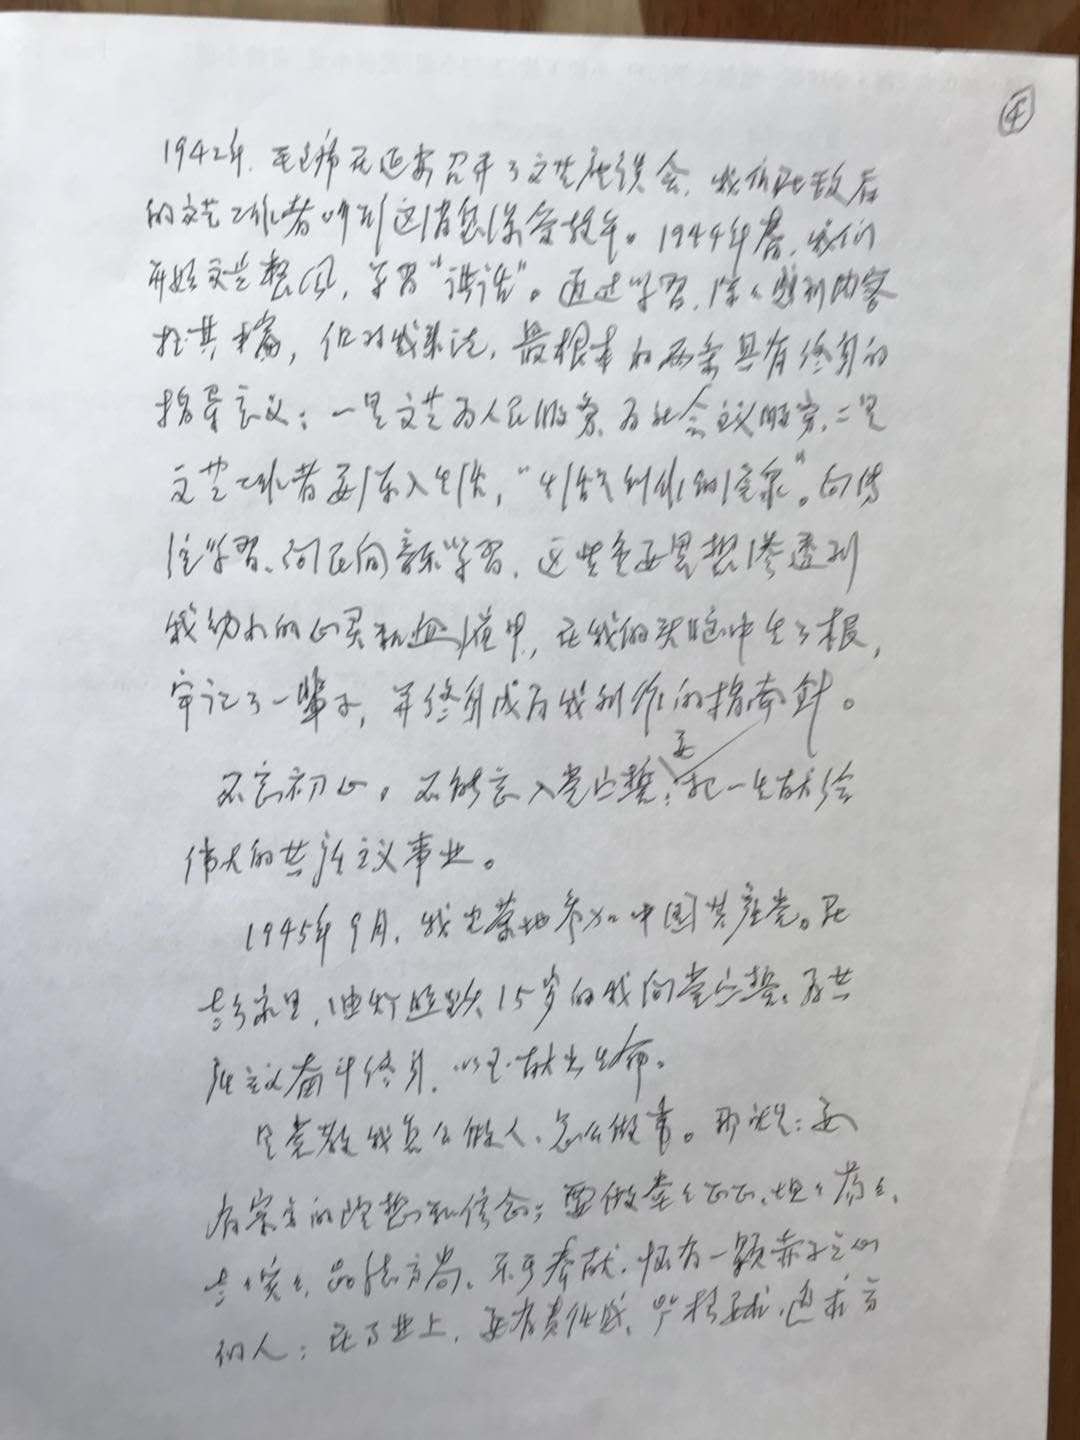 ④
1942年，毛主席在延安召开了文艺座谈会，我们在敌后
的文艺工作者听到这消息深受鼓舞。1944年春，我们
开始文艺整风，学习“讲话”。通过学习，深深感到内容
极其丰富，但对我来说，最根本的两条具有终身的
指导意义：一是文艺为人民服务、为社会主义服务，二是
文艺工作者要深入生活，“生活是创作的源泉”。向传
统学习、向民间音乐学习，这些重要思想渗透到
我幼小的心灵和血液里，在我的头脑中生了根，
牢记了一辈子，并终身成为我创作的指南针。
不忘初心。不能忘入党宣誓，要把一生献给
伟大的共产主义事业。
1945年9月，我光荣地参加中国共产党。在
老乡家里，油灯照跃，15岁的我向党宣誓，为共
产主义奋斗终身，以至献出生命。
是党教我怎么做人、怎么做事。那就是：要
有崇高的理想和信念；要做堂堂正正、坦坦荡荡、
老老实实、品德高尚、乐于奉献，怀有一颗赤子之心
的人；在事业上，要有责任感、严格要求，追求高